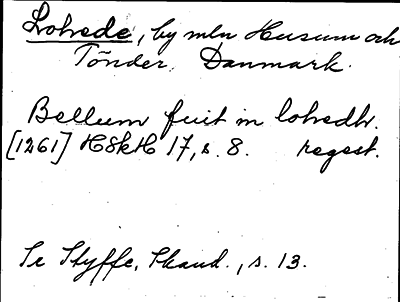 Lohede, by mln Husum och
Tönder, Danmark.
Bellum fuit in lohedh.
[1261] HSkH 17, s. 8. regest.
Se Styffe, Skand., s. 13.